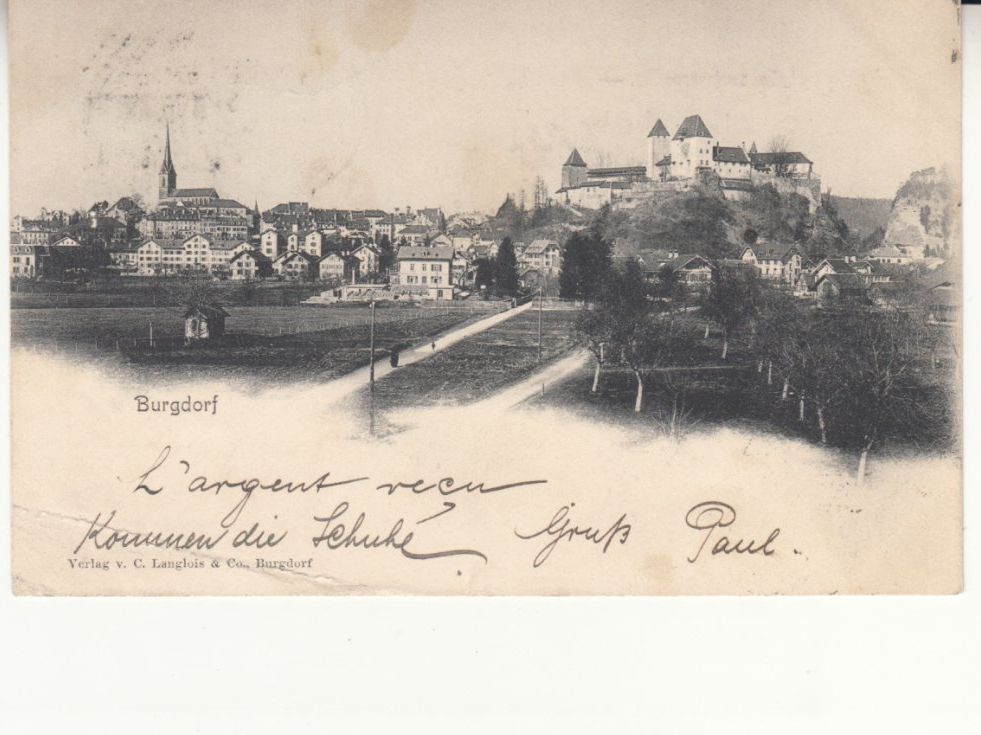 Burgdorf
L'argent recu
Kommen die Schuhe? Gruß Paul.
Verlag v. C. Langlois & Co., Burgdorf